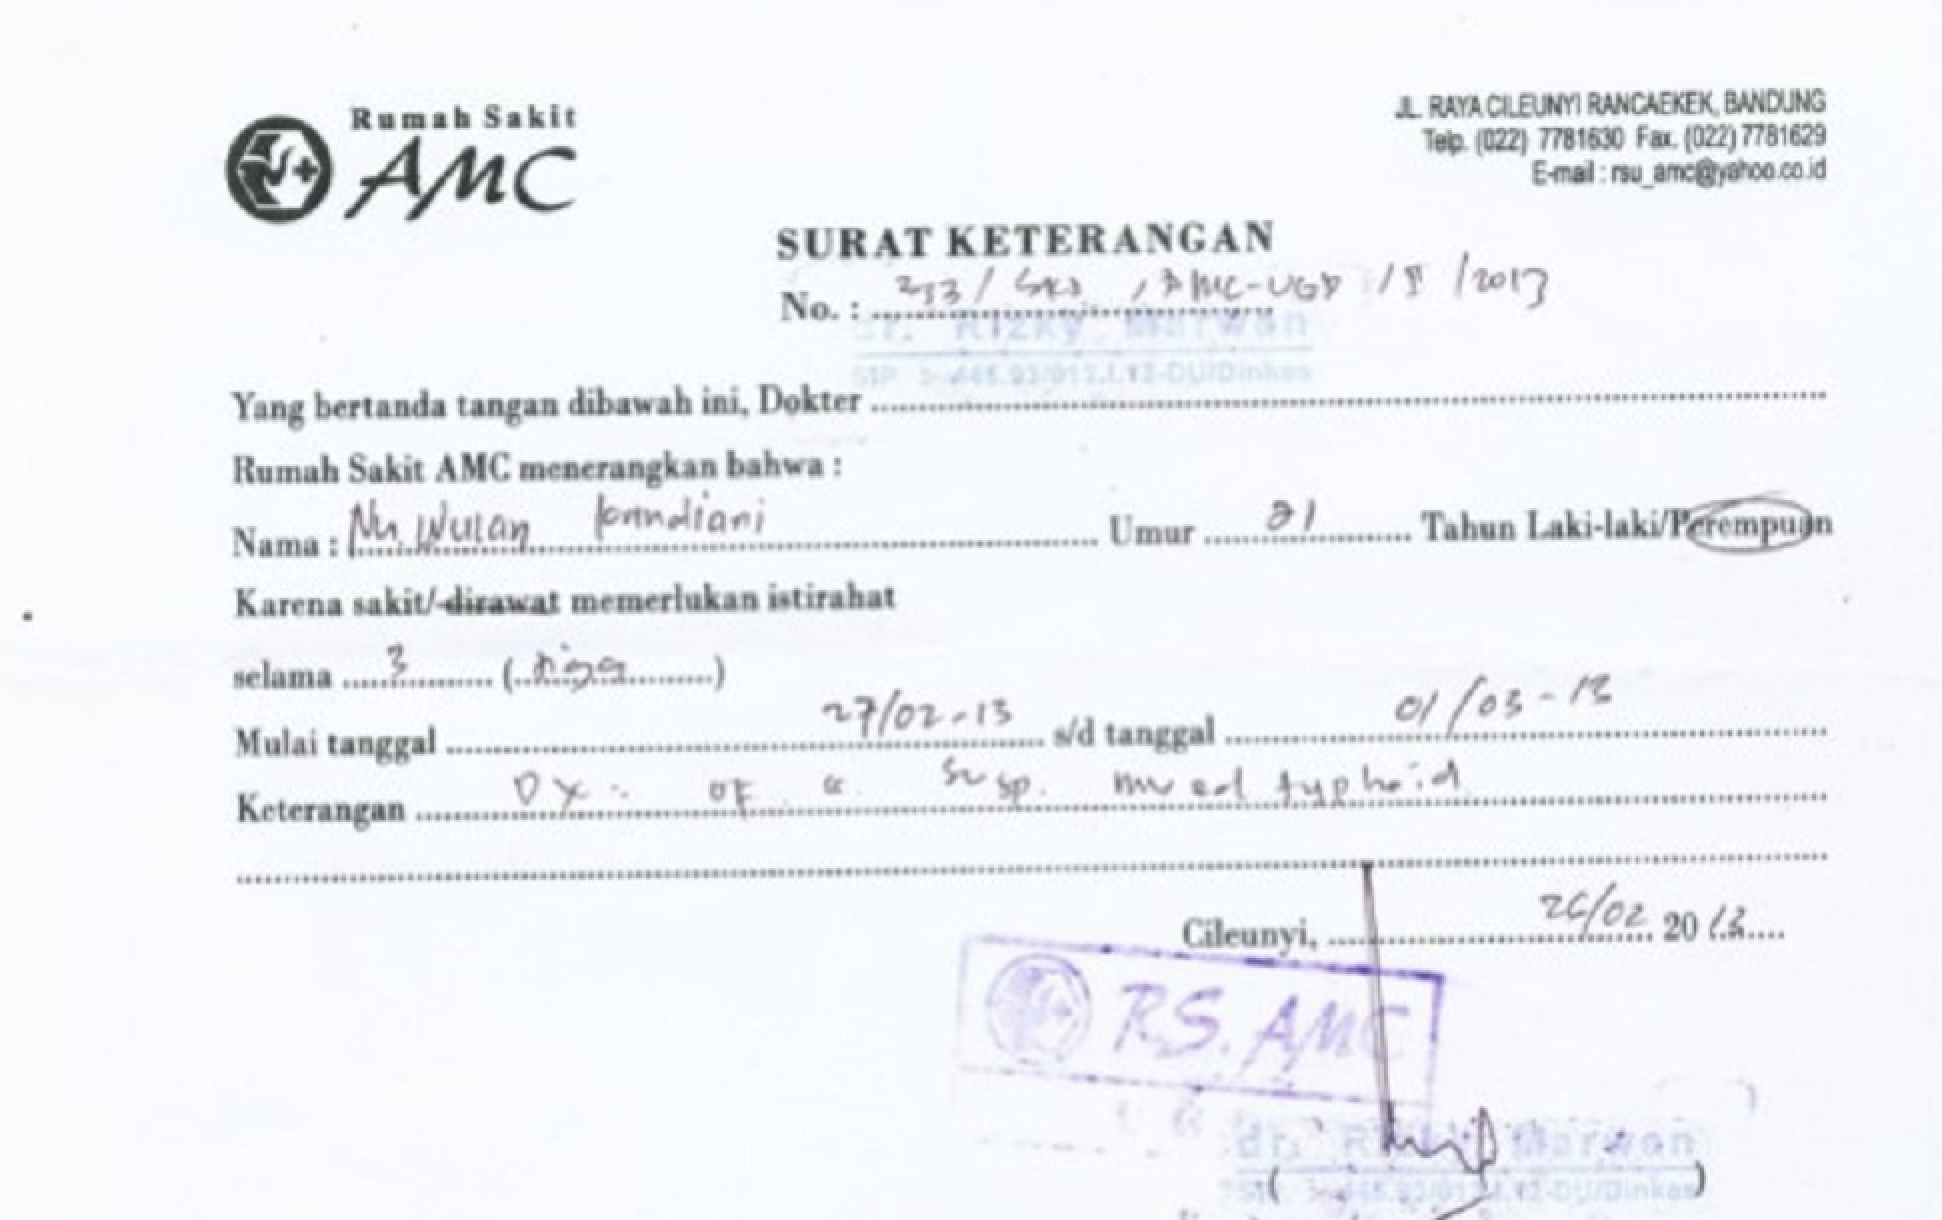 Rumah Sakit
AMC
JL. RAYA CILEUNYI RANCAEKEK, BANDUNG
Telp. (022) 7781630 Fax. (022) 7781629
E-mail : rsu_amc@yahoo.co.id
SURAT KETERANGAN
No. : / AMC-UGD / /2013
dr. Rizky Marwan
SIP.
Yang bertanda tangan dibawah ini, Dokter
Rumah Sakit AMC menerangkan bahwa :
Nama : Wulan Umur 21 Tahun Laki-laki/Perempuan
Karena sakit/dirawat memerlukan istirahat
selama 3 (tiga)
Mulai tanggal 27/02-13 s/d tanggal 01/03-13
Keterangan DX: susp. typhoid
Cileunyi, 26/02 2013
RS. AMC
dr. Rizky Marwan